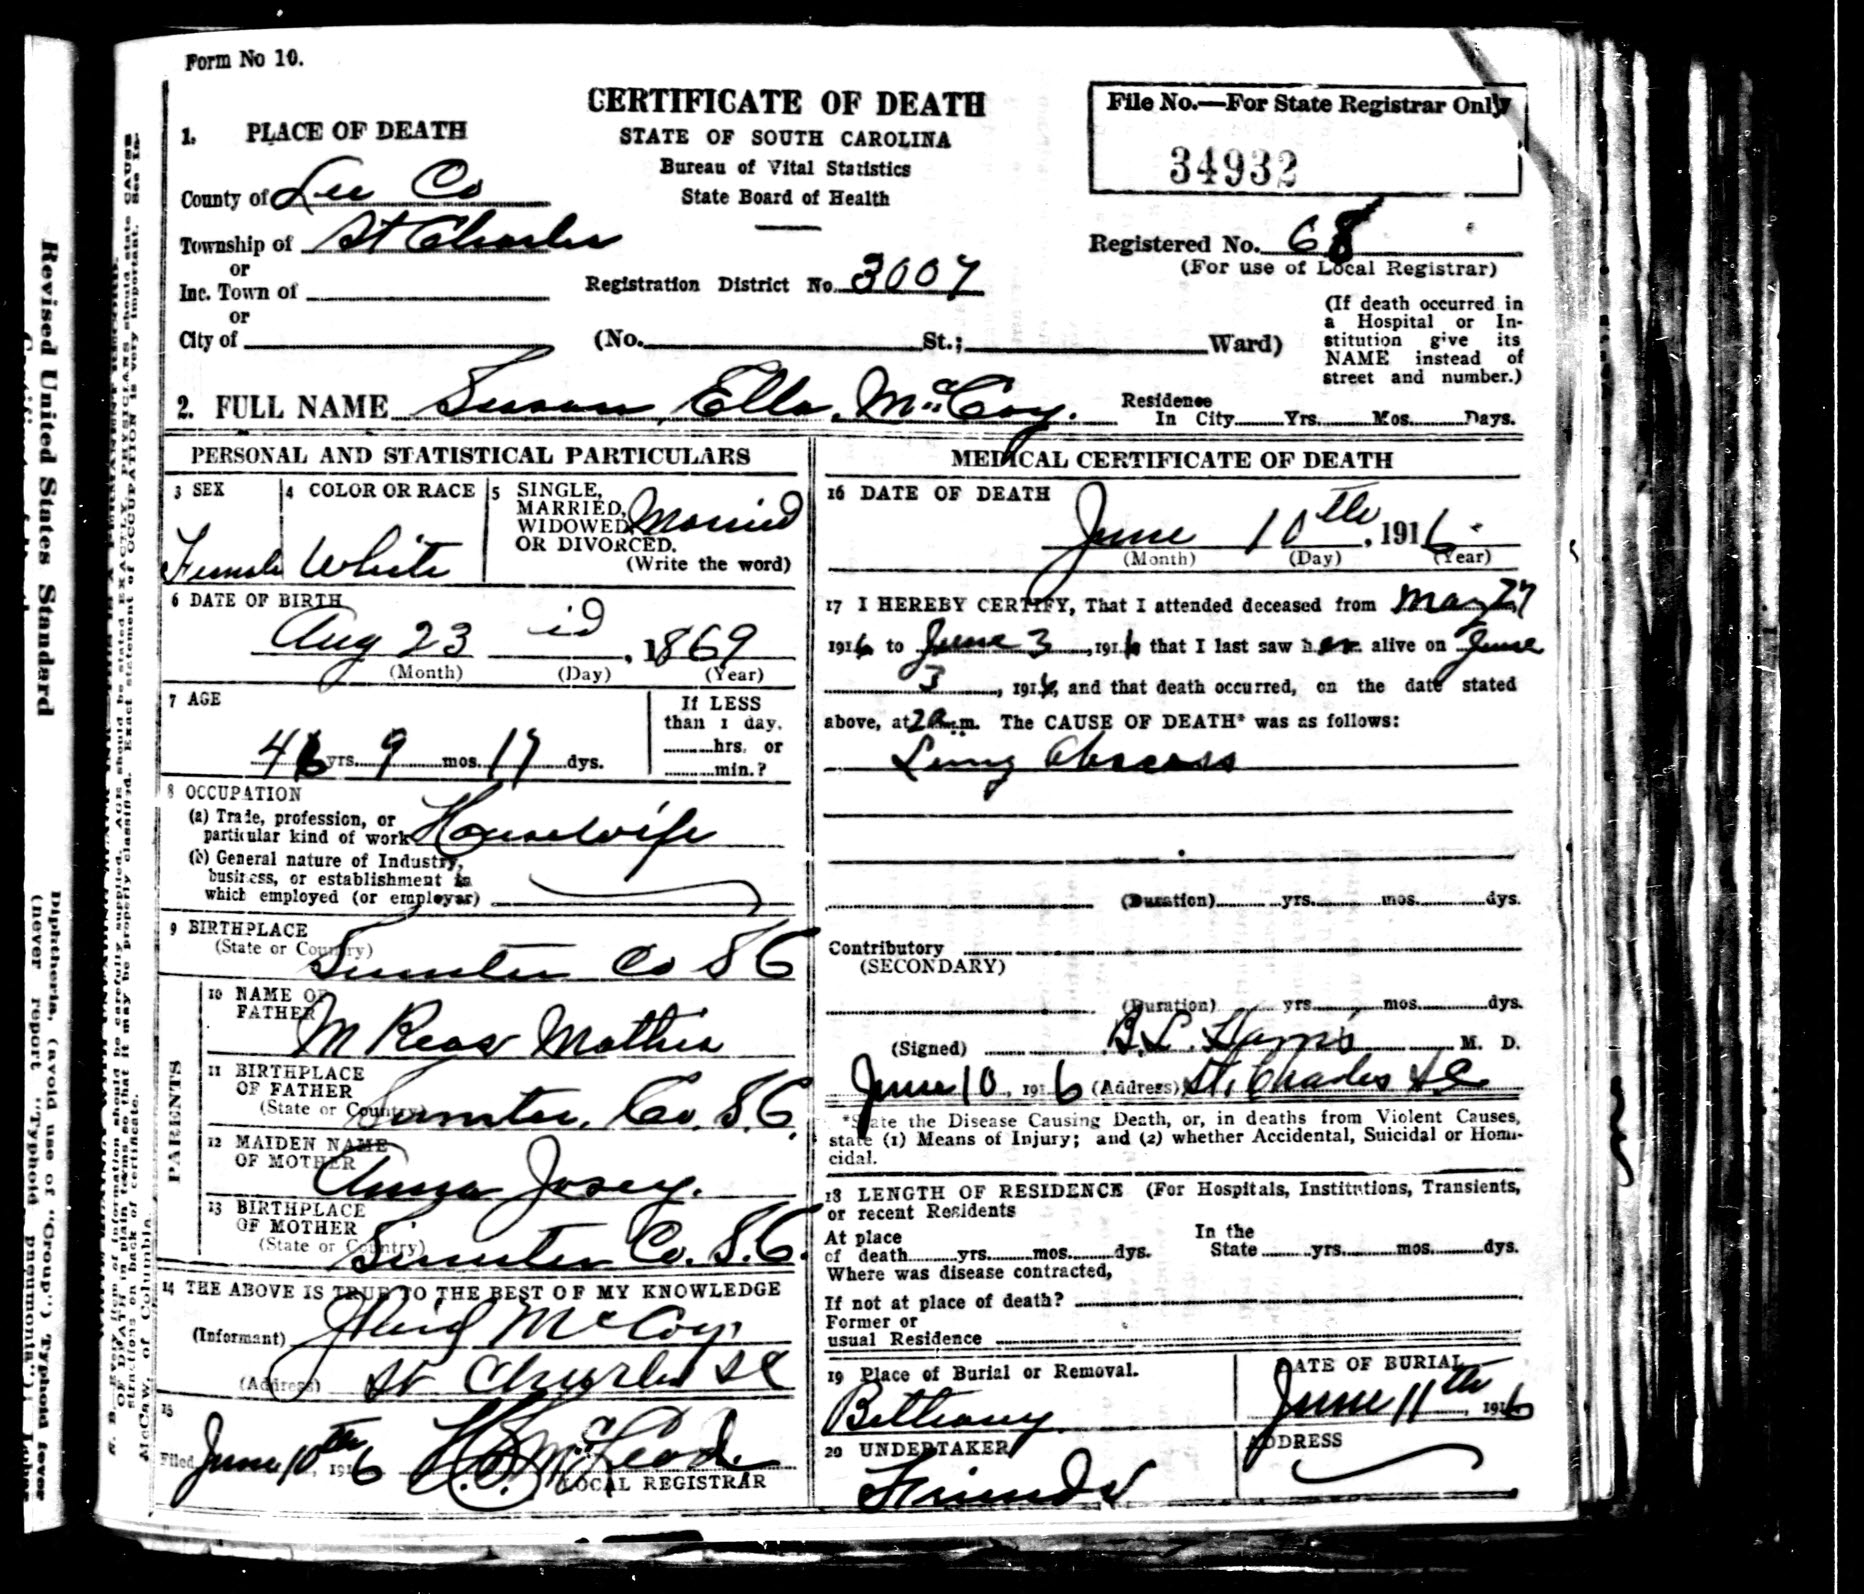 Form No 10.
CERTIFICATE OF DEATH
STATE OF SOUTH CAROLINA
Bureau of Vital Statistics
State Board of Health
File No.—For State Registrar Only
34932
1. PLACE OF DEATH
County of Lee Co
Township of St Charles
or
Inc. Town of
or
City of
Registration District No. 3007
Registered No. 68
(For use of Local Registrar)
(No. St.; Ward)
(If death occurred in
a Hospital or In-
stitution give its
NAME instead of
street and number.)
2. FULL NAME Susan Ella McCoy.
Residence
In City Yrs. Mos. Days.
PERSONAL AND STATISTICAL PARTICULARS
3 SEX
Female
4 COLOR OR RACE
White
5 SINGLE,
MARRIED,
WIDOWED,
OR DIVORCED.
Married
(Write the word)
6 DATE OF BIRTH
Aug 23 , 1869
(Month) (Day) (Year)
7 AGE
46 yrs. 9 mos. 17 dys.
If LESS
than 1 day,
hrs. or
min.?
8 OCCUPATION
(a) Trade, profession, or
particular kind of work Housewife
(b) General nature of Industry,
business, or establishment in
which employed (or employer)
9 BIRTHPLACE
(State or Country)
Sumter Co S C
PARENTS
10 NAME OF
FATHER
M Mathis
11 BIRTHPLACE
OF FATHER
(State or Country)
Sumter, Co. S.C.
12 MAIDEN NAME
OF MOTHER
Anna Josey.
13 BIRTHPLACE
OF MOTHER
(State or Country)
Sumter Co. S.C.
14 THE ABOVE IS TRUE TO THE BEST OF MY KNOWLEDGE
(Informant) McCoy
(Address) St Charles S C
15
Filed June 10th, 1916 McLeod.
LOCAL REGISTRAR
MEDICAL CERTIFICATE OF DEATH
16 DATE OF DEATH
June 10th, 1916.
(Month) (Day) (Year)
17 I HEREBY CERTIFY, That I attended deceased from May 27
1916 to June 3, 1916 that I last saw her alive on June
3, 1916, and that death occurred, on the date stated
above, at 2 a. m. The CAUSE OF DEATH* was as follows:
Lung Abscess
(Duration) yrs. mos. dys.
Contributory
(SECONDARY)
(Duration) yrs. mos. dys.
(Signed) B.L. Harris M. D.
June 10, 1916 (Address) St. Charles S C
*State the Disease Causing Death, or, in deaths from Violent Causes,
state (1) Means of Injury; and (2) whether Accidental, Suicidal or Homi-
cidal.
18 LENGTH OF RESIDENCE (For Hospitals, Institutions, Transients,
or recent Residents
At place
of death yrs. mos. dys.
In the
State yrs. mos. dys.
Where was disease contracted,
If not at place of death?
Former or
usual Residence
19 Place of Burial or Removal.
Bethany
DATE OF BURIAL
June 11th, 1916
20 UNDERTAKER
Friends
ADDRESS
Revised United States Standard
Diphtheria, (avoid use of "Croup") Typhoid fever
(never report "Typhoid pneumonia");